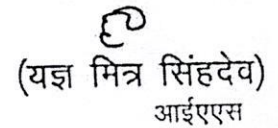 (यज्ञ मित्र सिंहदेव)
आईएएस